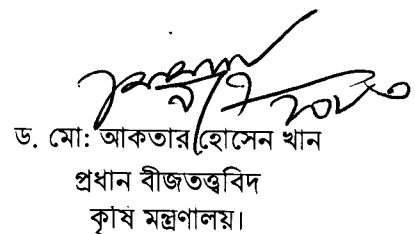 ড. মো: আকতার হোসেন খান
প্রধান বীজতত্ত্ববিদ
কৃষি মন্ত্রণালয়।